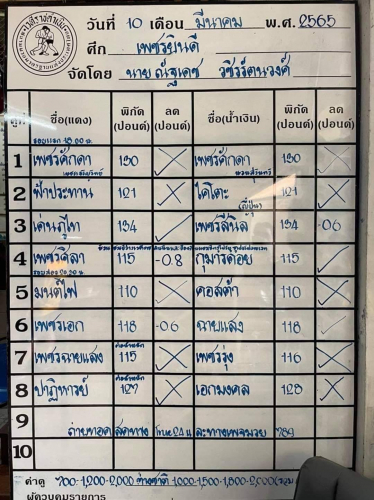 วันที่ 10 เดือน มีนาคม พ.ศ. 2565
ศึก เพชรยินดี
จัดโดย นายณัฐเดช วชิรรัตนวงศ์
คู่ที่ ชื่อ(แดง) พิกัด (ปอนด์) ลด (ปอนด์) ชื่อ(น้ำเงิน) พิกัด (ปอนด์) ลด (ปอนด์)
รอบแรก 18.00 น.
1 เพชรศักดา 130 เพชรศักดา 130
2 ฟ้าประทาน 121 ไคโตะ 121
(ญี่ปุ่น)
3 เด่นภูไท 134 เพชรสีนิล 134 -0.6
4 เพชรศิลา 115 -0.8 กุมารดอย 115
รอบสอง 20.30 น.
5 มนต์ไฟ 110 คอสต้า 110
6 เพชรเอก 118 -0.6 ฉายแสง 118
7 เพชรฉายแสง 115 เพชรรุ่ง 116
8 ปาฏิหารย์ 127 เอกมงคล 128
9 ถ่ายทอดสดทาง True24 และทางเพจมวย 789
10
ค่าดู 700-1,200-2,000 ต่างชาติ 1,000-1,500-1,800-2,000
ผู้ควบคุมรายการ